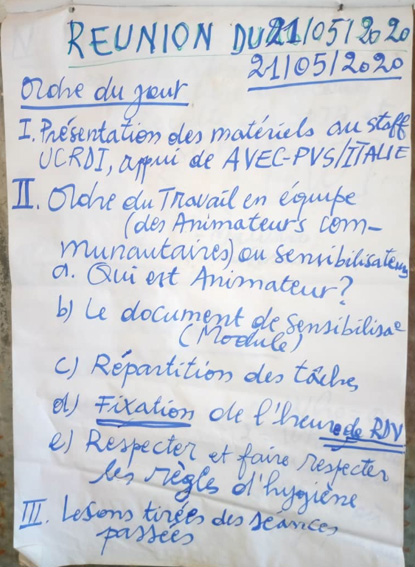 REUNION DU 21/05/2020
21/05/2020
Ordre du jour
I. Présentation des matériels au staff
UCRDI, appui de AVEC-PVS/ITALIE
II. Ordre du Travail en équipe
(des Animateurs com-
munautaires) ou sensibilisateurs
a. Qui est Animateur?
b) Le document de Sensibilisa°
(Module)
c) Répartition des tâches
d) Fixation de l'heure de RDV
e) Respecter et faire respecter
les règles d'hygiène
III. Lesons tirées des séances
passées